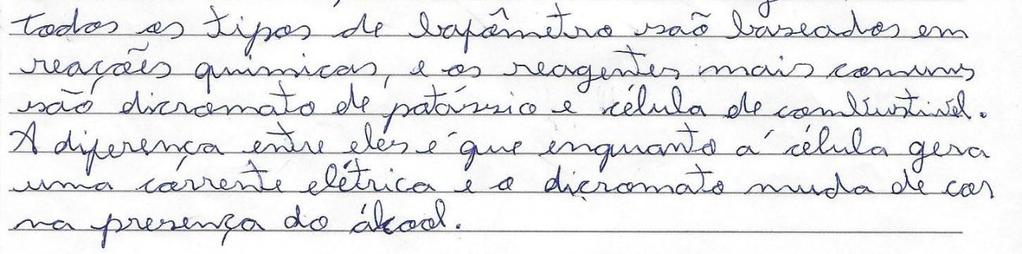 todos os tipos de bafômetro são baseados em
reações químicas, e os reagentes mais comuns
são dicromato de potássio e célula de combustível.
A diferença entre eles é que enquanto a célula gera
uma corrente elétrica e o dicromato muda de cor
na presença do álcool.